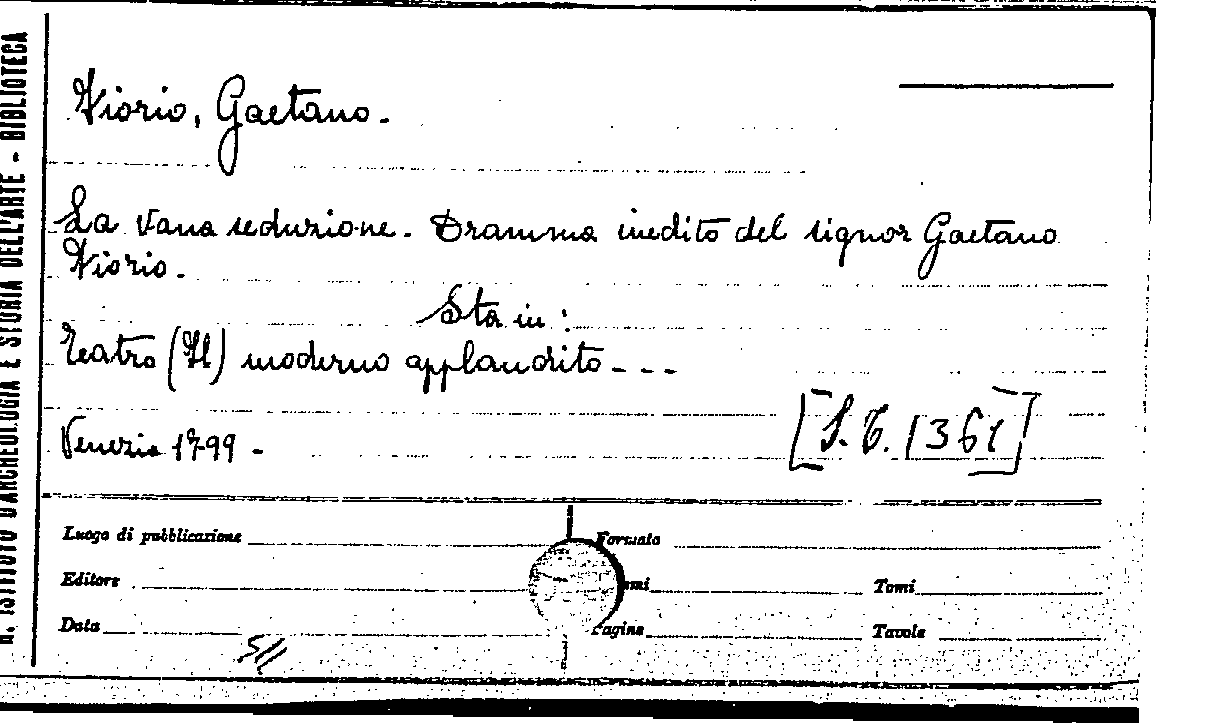 R. ISTITUTO D'ARCHEOLOGIA E STORIA DELL'ARTE - BIBLIOTECA
Fiorio, Gaetano.
La vana seduzione. Dramma inedito del signor Gaetano
Fiorio.
Sta in:
Teatro (Il) moderno applaudito - - -
Venezia 1799 -
[S. T. 1361]
Luogo di pubblicazione
Formato
Editore
Tomi
Data
Pagine
Tavole